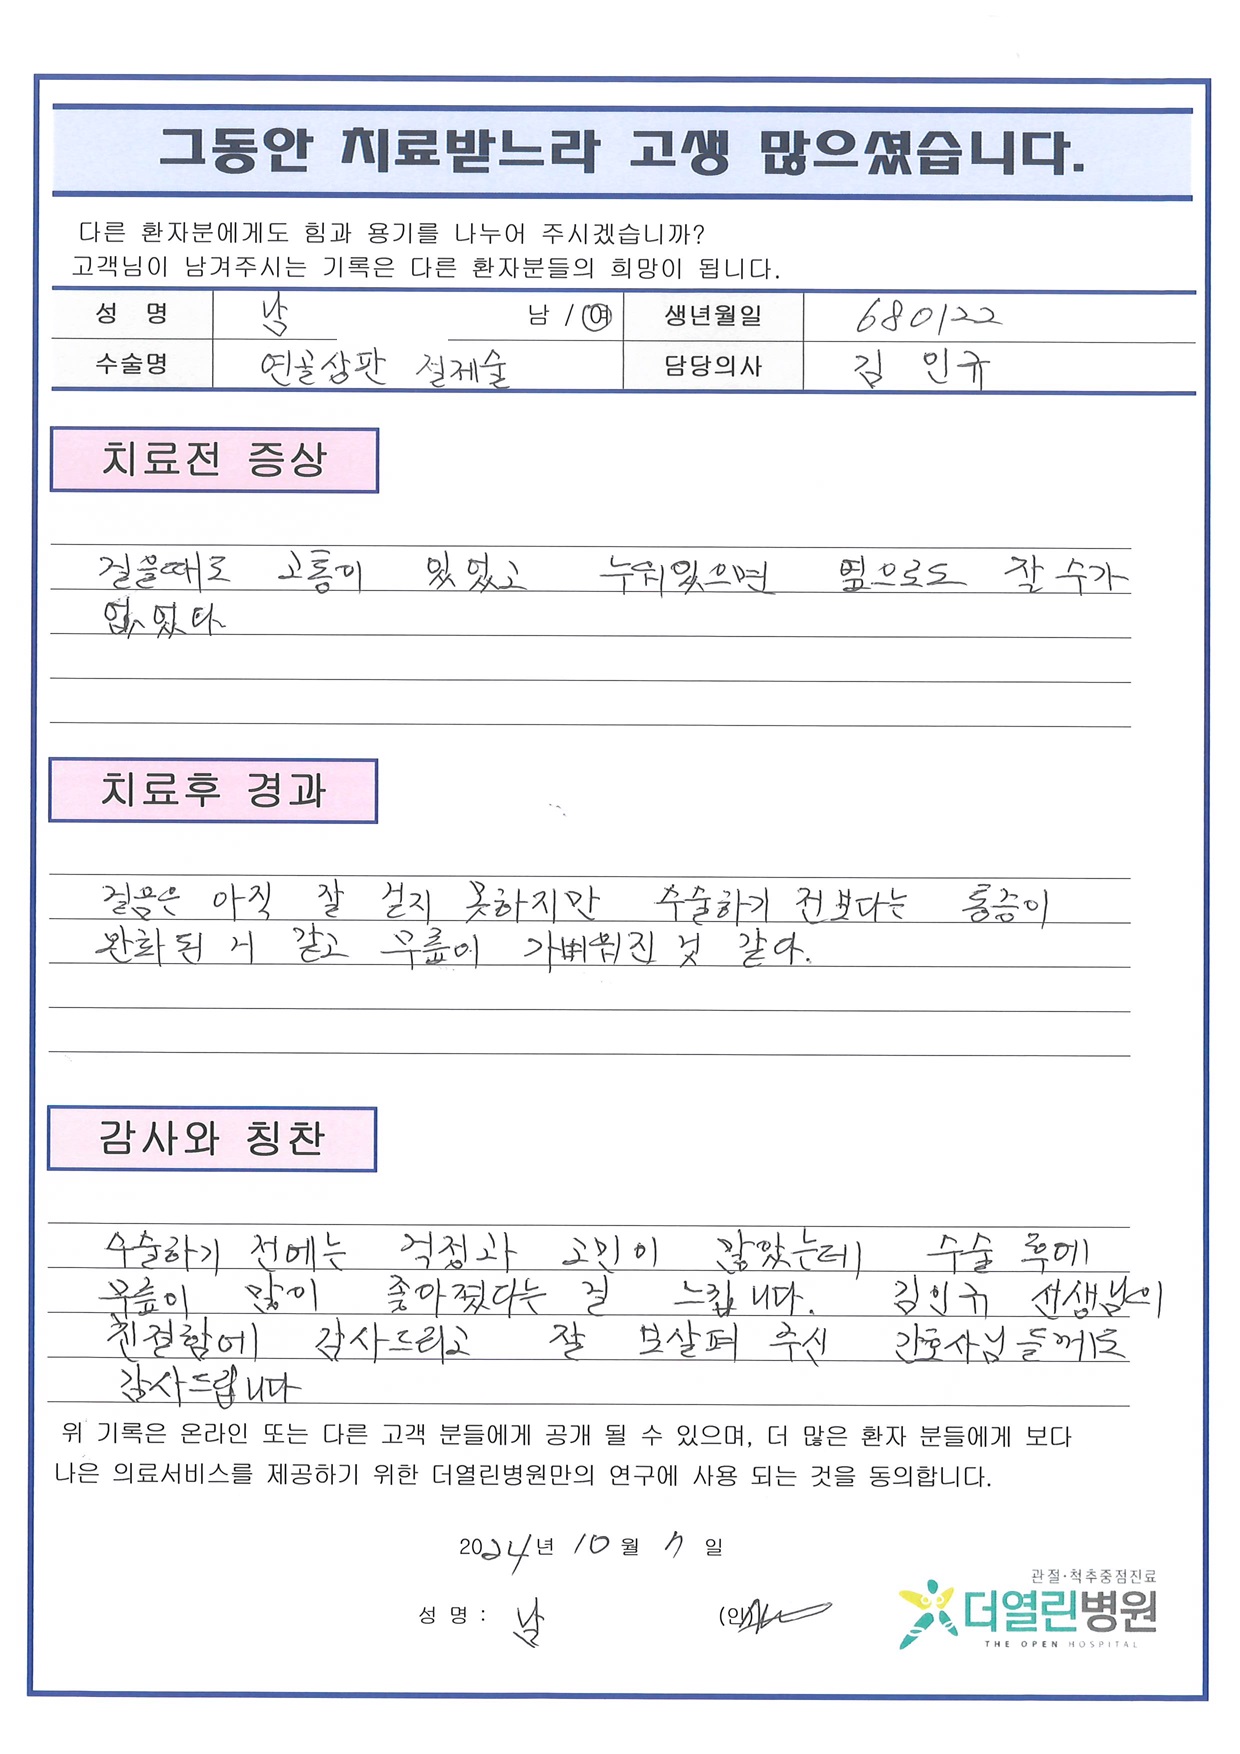 그동안 치료받느라 고생 많으셨습니다.
다른 환자분에게도 힘과 용기를 나누어 주시겠습니까?
고객님이 남겨주시는 기록은 다른 환자분들의 희망이 됩니다.
성 명 남 남 / 여 생년월일 680122
수술명 연골상판 절제술 담당의사 김 인규
치료전 증상
걸을때도 고통이 있었고 누워있으면 옆으로도 잘 수가
없었다.
치료후 경과
걸음은 아직 잘 걷지 못하지만 수술하기 전보다는 통증이
완화된 거 같고 무릎이 가벼워진 것 같다.
감사와 칭찬
수술하기 전에는 걱정과 고민이 많았는데 수술 후에
무릎이 많이 좋아졌다는 걸 느낍니다. 김인규 선생님의
친절함에 감사드리고 잘 보살펴 주신 간호사님들께도
감사드립니다
위 기록은 온라인 또는 다른 고객 분들에게 공개 될 수 있으며, 더 많은 환자 분들에게 보다
나은 의료서비스를 제공하기 위한 더열린병원만의 연구에 사용 되는 것을 동의합니다.
2024년 10월 7일
성 명 : 남 (인)
관절·척추중점진료
더열린병원
THE OPEN HOSPITAL